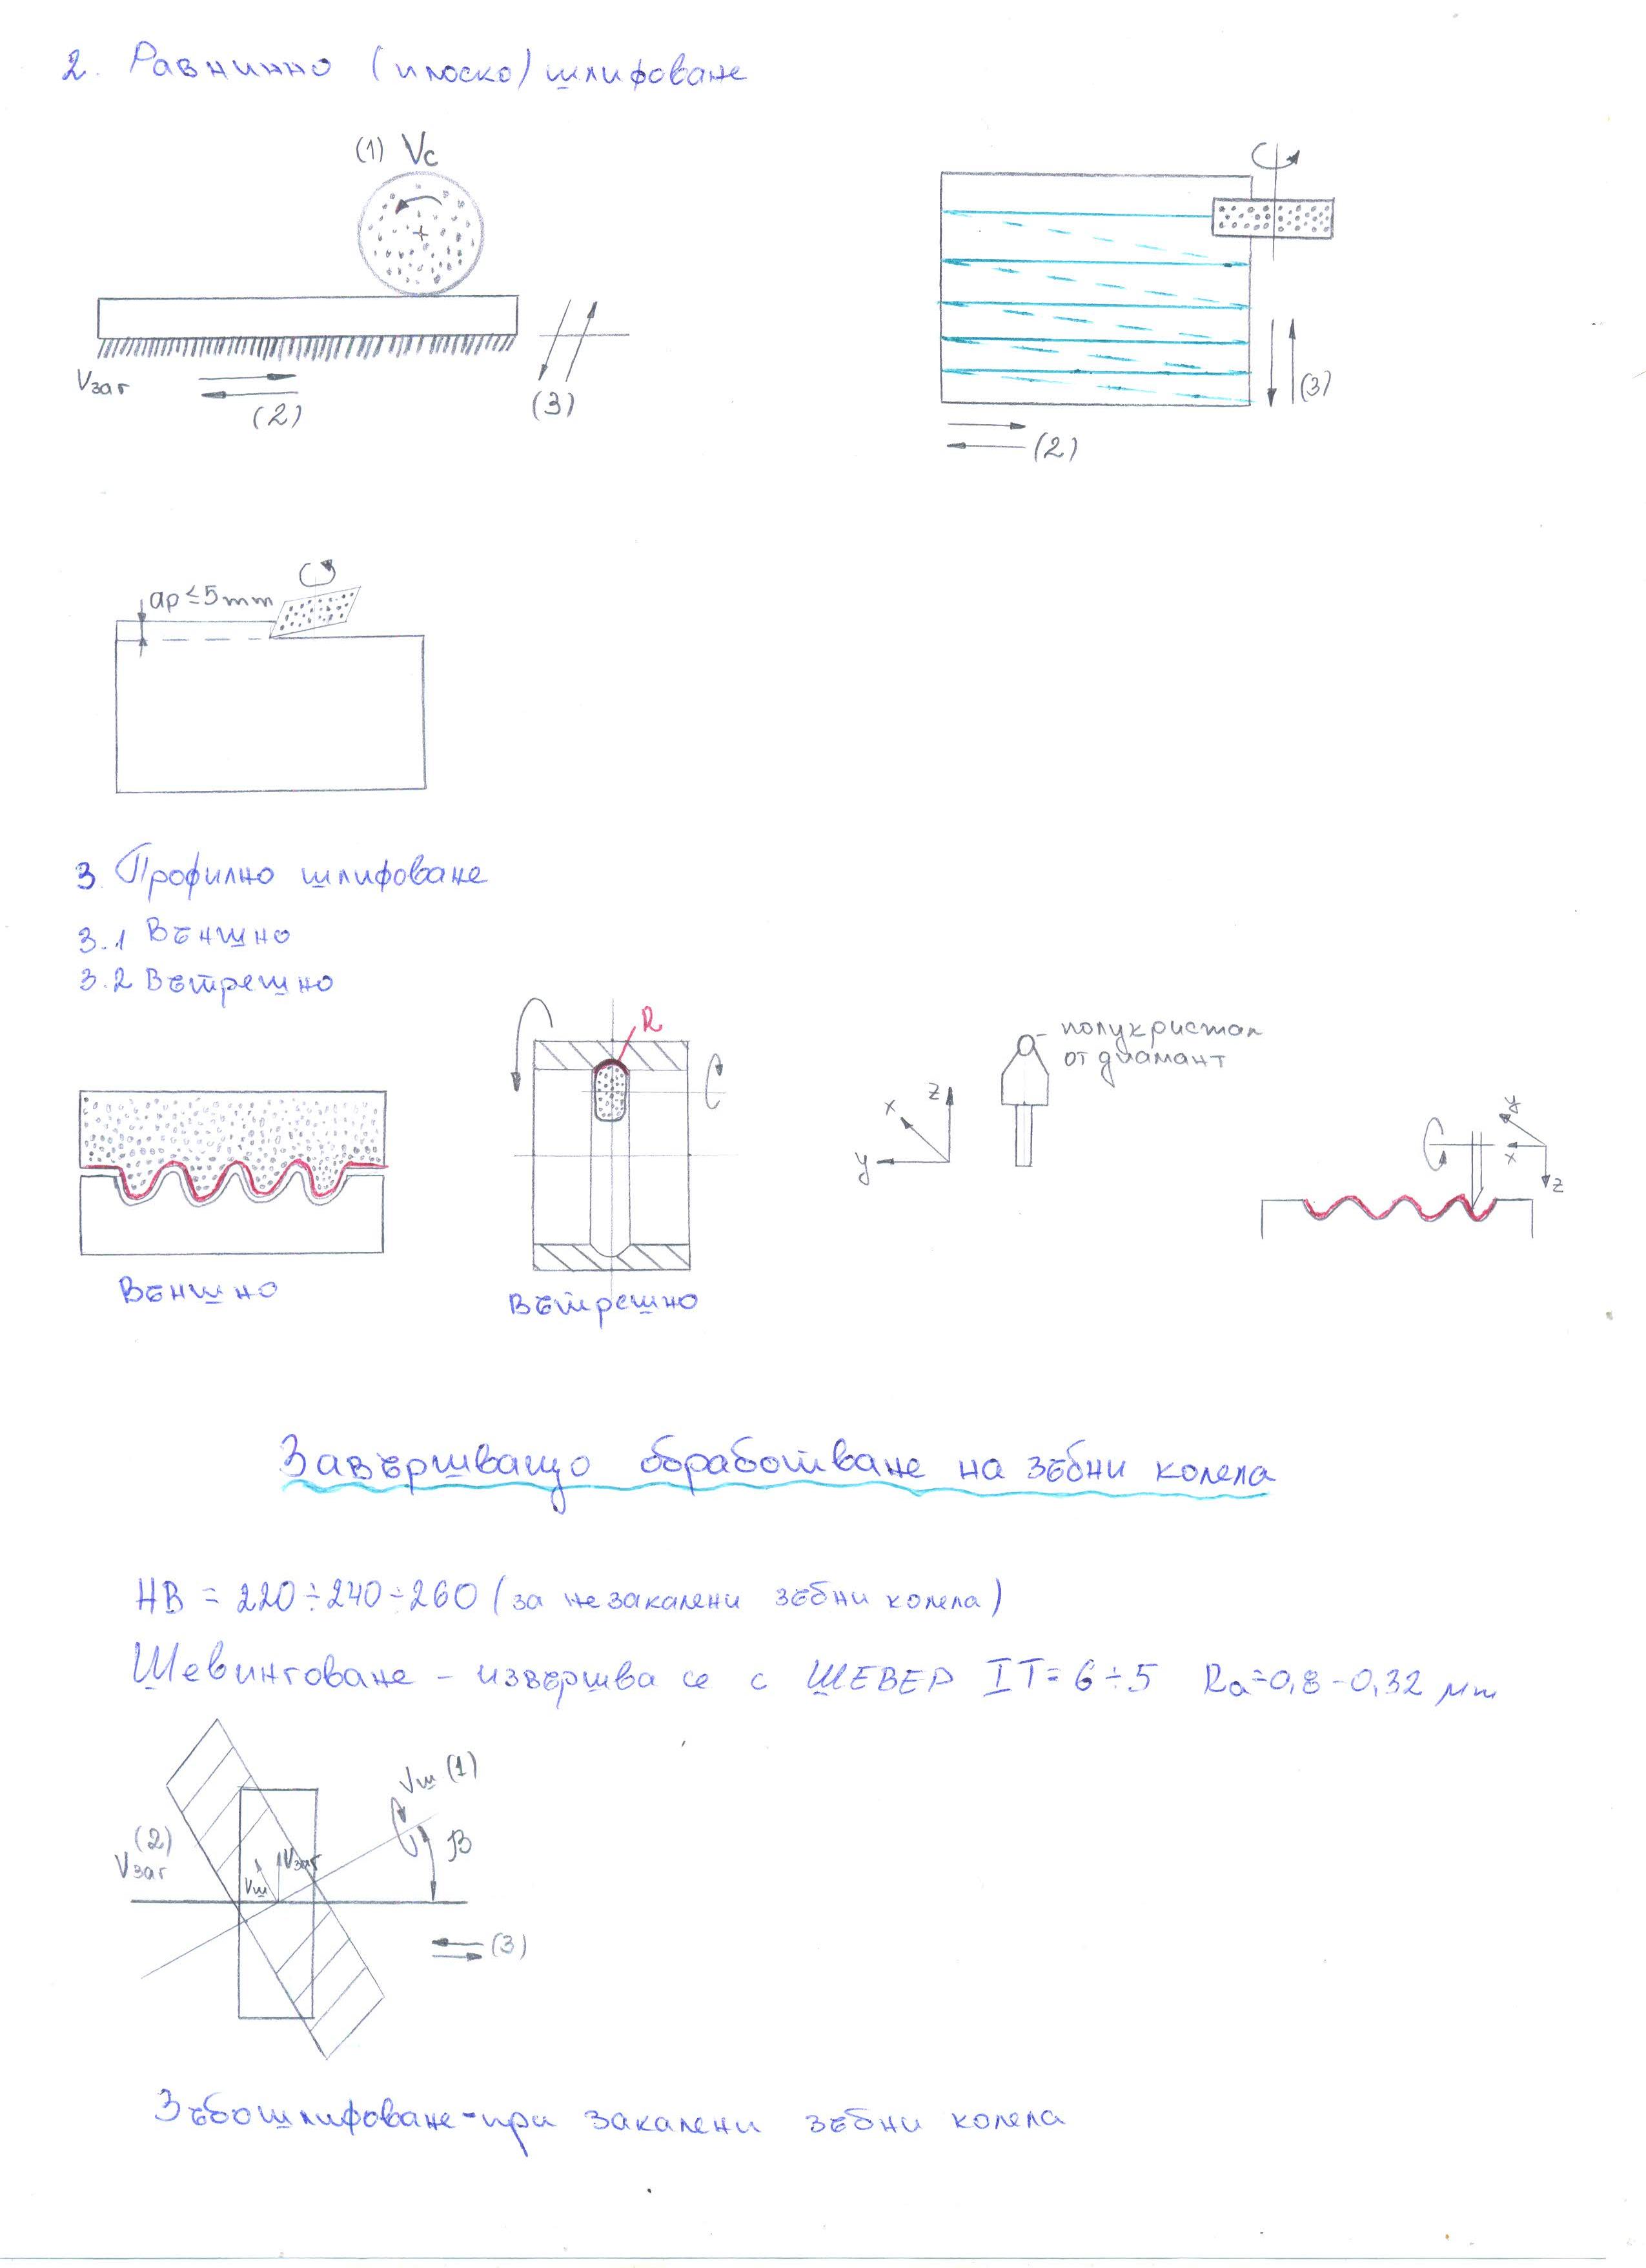 2. Равнинно (плоско) шлифоване
(1) Vc
Vзаг
(2)
(3)
(3)
(2)
ap ≤ 5mm
3. Профилно шлифоване
3.1 Външно
3.2 Вътрешно
R
полукристал
от диамант
z
x
y
y
x
z
Външно
Вътрешно
Завършващо обработване на зъбни колела
HB = 220÷240÷260 (за незакалени зъбни колела)
Шевинговане - извършва се с ШЕВЕР IT=6÷5 Ra=0,8-0,32 μm
Vш (1)
(2)
Vзаг
β
Vзаг
Vш
(3)
Зъбошлифоване-при закалени зъбни колела